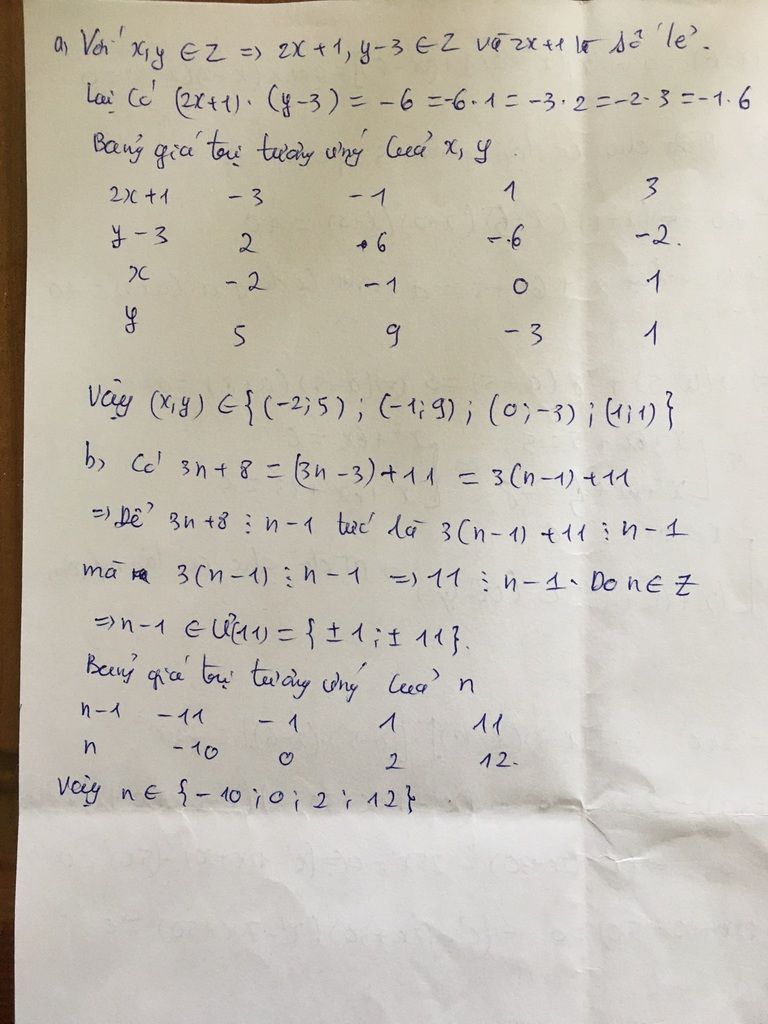 a, Với x,y ∈ Z => 2x+1, y-3 ∈ Z và 2x+1 là số lẻ.
Lại có (2x+1) · (y-3) = -6 = -6·1 = -3·2 = -2·3 = -1·6
Bảng giá trị tương ứng của x, y.
2x+1 -3 -1 1 3
y-3 2 6 -6 -2.
x -2 -1 0 1
y 5 9 -3 1
Vậy (x,y) ∈ {(-2;5) ; (-1;9) ; (0;-3) ; (1;1)}
b, Có 3n+8 = (3n-3)+11 = 3(n-1)+11
=> Để 3n+8 ⋮ n-1 tức là 3(n-1)+11 ⋮ n-1
mà 3(n-1) ⋮ n-1 => 11 ⋮ n-1. Do n ∈ Z
=> n-1 ∈ Ư(11) = {±1; ±11}.
Bảng giá trị tương ứng của n
n-1 -11 -1 1 11
n -10 0 2 12.
Vậy n ∈ {-10; 0; 2; 12}